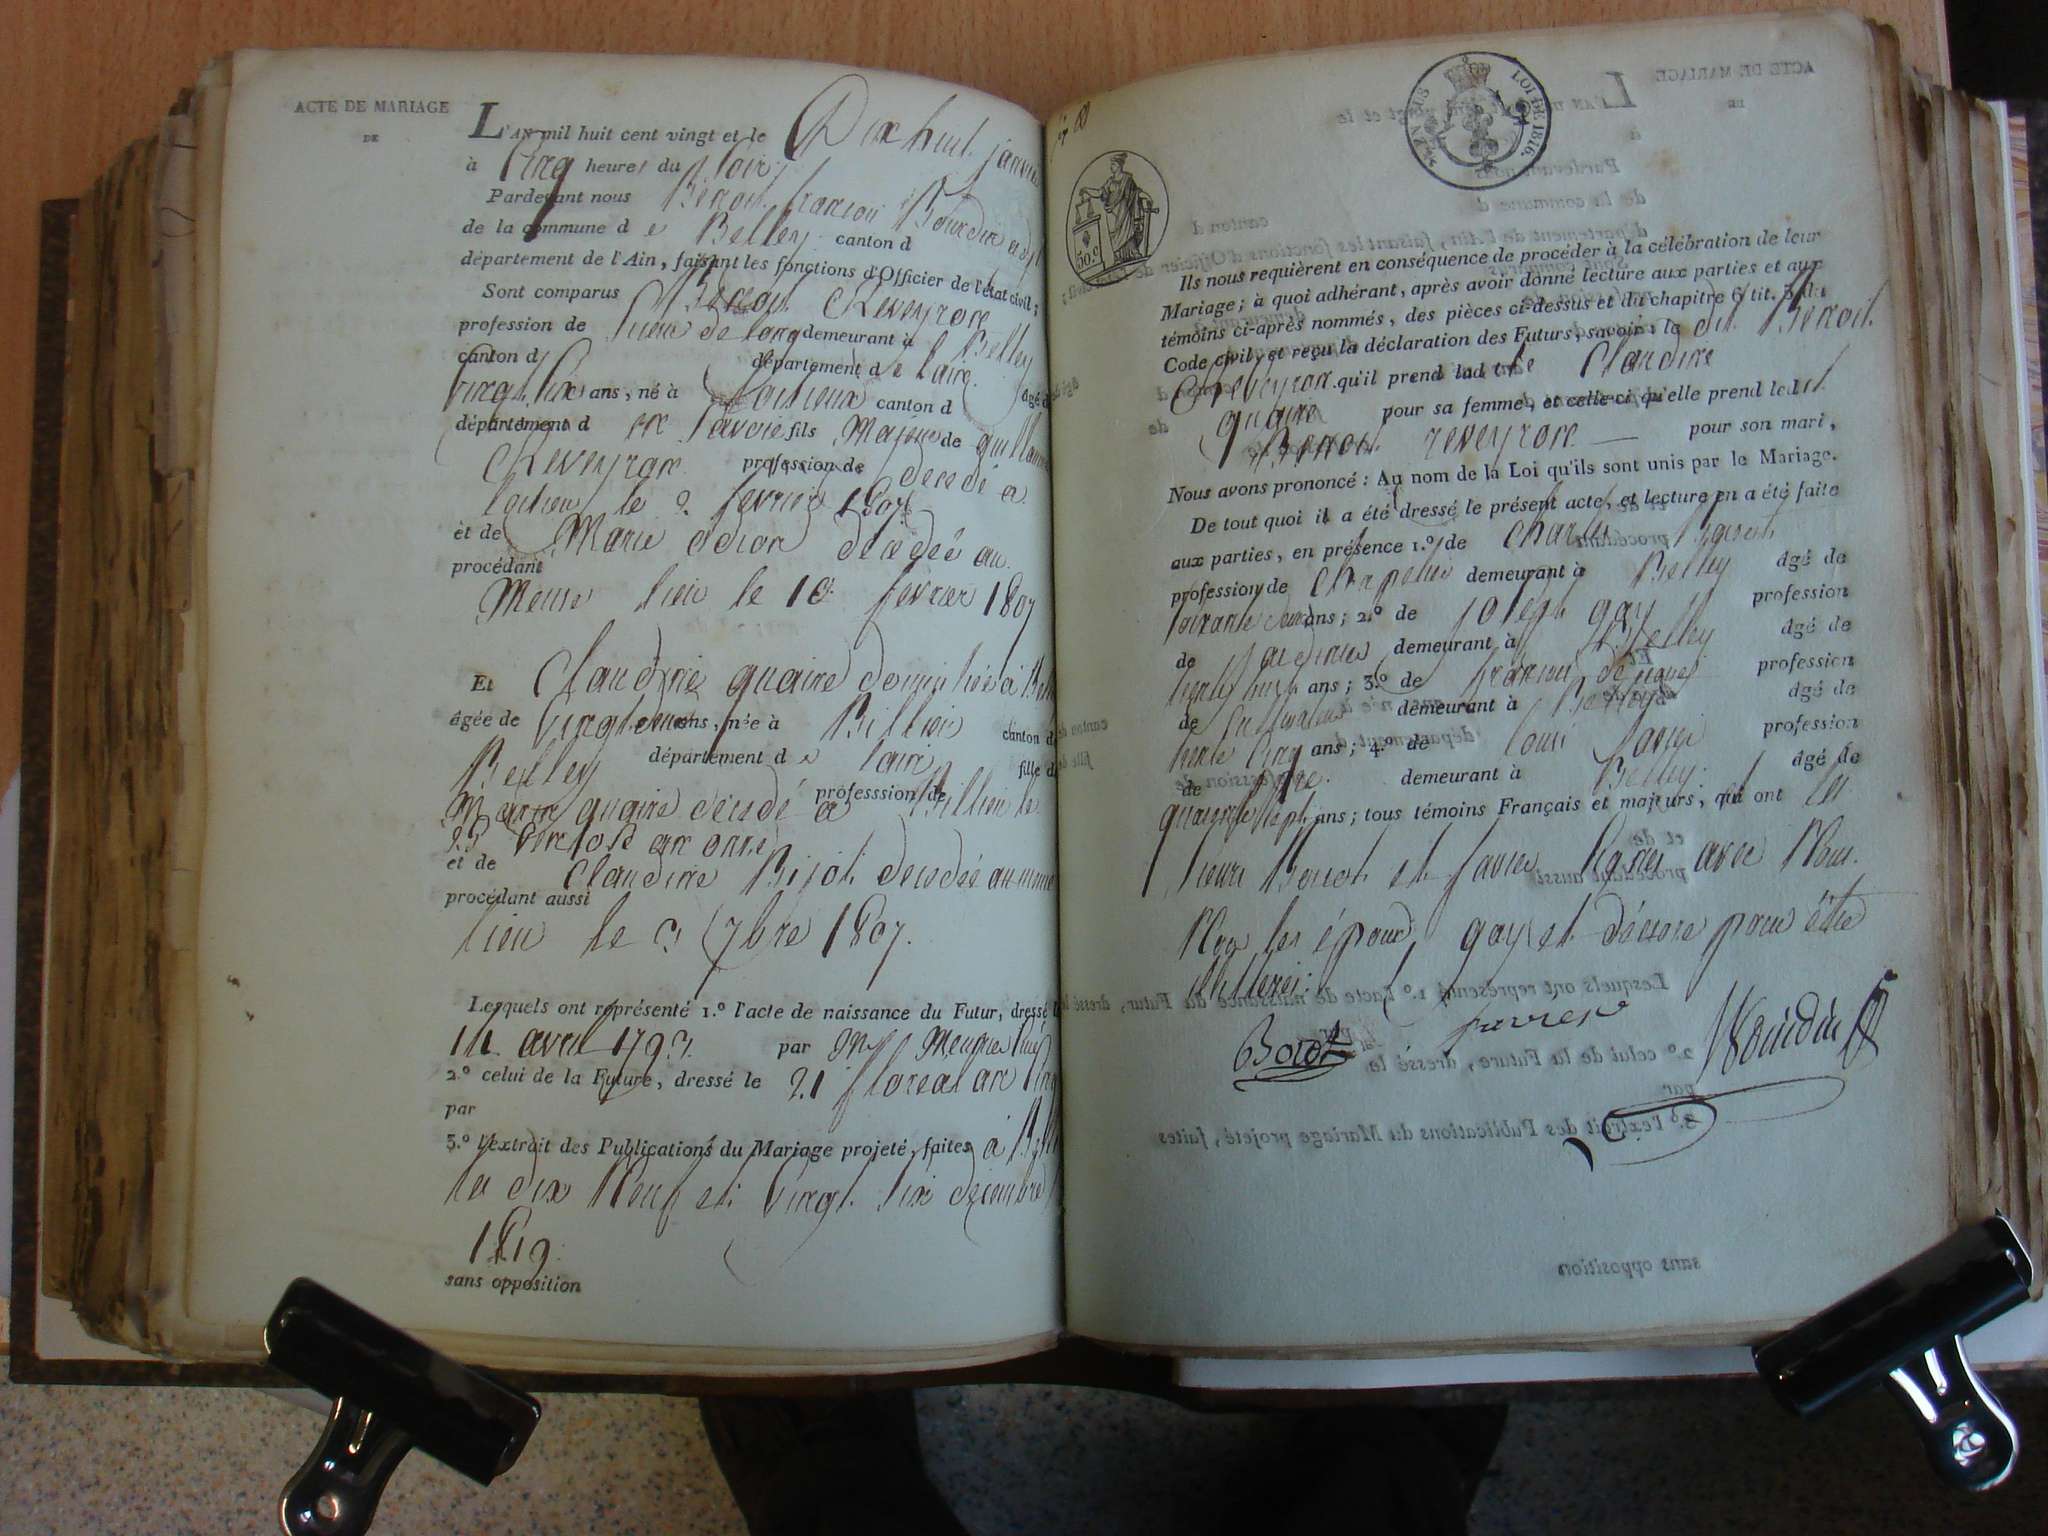 ACTE DE MARIAGE
DE
L'AN mil huit cent vingt et le Dix huit janvier
à Cinq heures du soir
Pardevant nous Benoit francois Bourdin adjt
de la commune d e Belley canton d
département de l'Ain, faisant les fonctions d'Officier de l'état civil;
Sont comparus Benoit Reveyron
profession de sieur de long demeurant à Belley
canton d département d e laire. âgé de
Vingt six ans, né à canton d
département d en Savoie fils Majeur de guillaume
Reveyron profession de décédé a
le 2 fevrier 1807
et de Marie décédée au
procédant
Meme lieu le 10 fevrier 1807
Et Claudine quaire domiciliée à Belley
âgée de Vingt deux ans, née à Billieu canton de
Belley département d e lain fille de
Martin quaire décédé a professsion de Billieu le
25 Ventose an onze
et de Claudine Bijot décédée au meme
procédant aussi
lieu le 3 7bre 1807.
Lesquels ont représenté 1.º l'acte de naissance du Futur, dressé le
14 avril 1793. par Mr
2.º celui de la Future, dressé le 21 floreal an Cinq
par
3.º l'extrait des Publications du Mariage projeté, faites à Belley
les dix Neuf et Vingt six décembre
1819.
sans opposition
TIMBRE ROYAL
LOI DE 1816.
50.c
Ils nous requièrent en conséquence de procéder à la célébration de leur
Mariage; à quoi adhérant, après avoir donné lecture aux parties et aux
témoins ci-après nommés, des pièces ci-dessus et du chapitre 6, tit. 5 du
Code civil, et reçu la déclaration des Futurs, savoir: le dit Benoit
Reveyron qu'il prend lad ite Claudine
quaire pour sa femme, et celle-ci qu'elle prend led it
Benoit reveyron pour son mari,
Nous avons prononcé: Au nom de la Loi qu'ils sont unis par le Mariage.
De tout quoi il a été dressé le présent acte, et lecture en a été faite
aux parties, en présence 1.º de Charles Boirot
profession de Chapelier demeurant à Belley âgé de
soixante deux ans; 2.º de joseph gay profession
de demeurant à Belley âgé de
trente huit ans; 3.º de francois profession
de Cultivateur demeurant à Belley âgé de
trente Cinq ans; 4.º de louis favier profession
de demeurant à Belley. âgé de
quarante sept ans; tous témoins Français et majeurs, qui ont les
sieurs Boirot et favier signés avec Nous.
Non les époux, gay et pour être
illiterés.
Boirot favier Bourdin